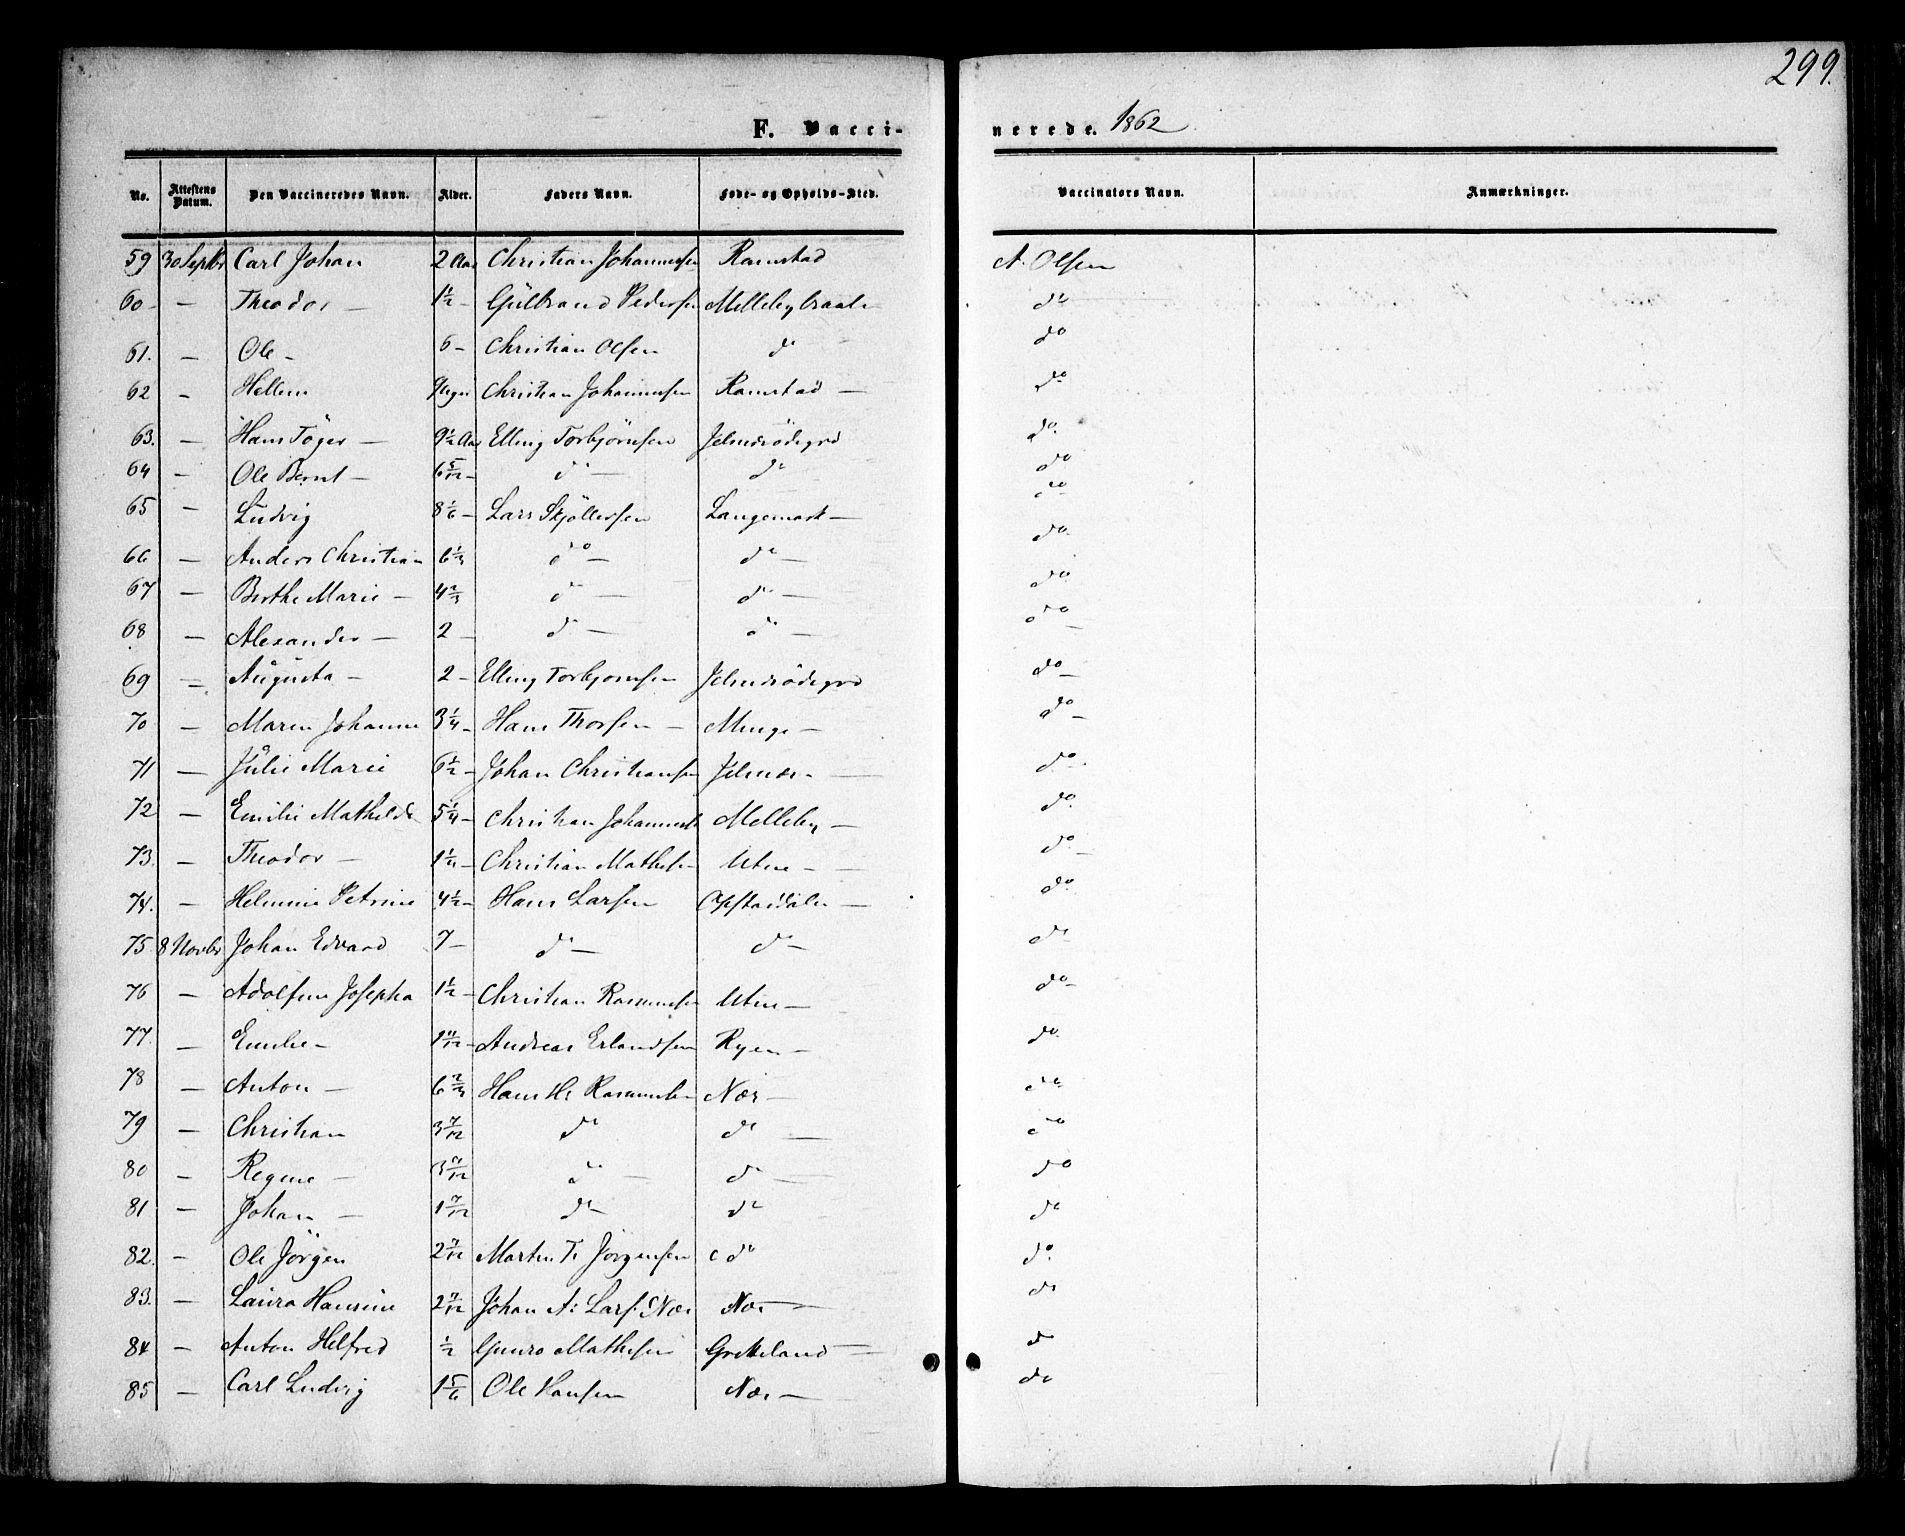 299.
F. Vaccinerede. 1862
No. | Attestens Datum. | Den Vaccineredes Navn. | Alder. | Faders Navn. | Føde- og Opholds-Sted. | Vaccinators Navn. | Anmærkninger.
59 | 30 Septbr | Carl Johan | 2 Aar | Christian Johannesen | Ramstad | A. Olsen
60 | — | Theodor — | 1 1/2 — | Gulbrand Pedersen | Melleby | do
61. | — | Ole — | 6 — | Christian Olsen | do | do
62 | — | Hellene | | Christian Johannesen | Ramstad — | do
63. | — | Hans Töger — | 9 1/2 Aar | Elling Torbjörnsen | Jelmerödegrd | do
64 | — | Ole Bernt — | 6 5/12 — | do — | do | do
65 | — | Ludvig | 8 1/6 — | Lars Skjöllersen | Langemark — | do
66 | — | Anders Christian | 6 1/3 | do — | do — | do
67 | — | Berthe Marie — | 4 2/3 | do — | do — | do
68 | — | Alexander — | 2 — | do — | do — | do
69 | — | Augusta — | 2 — | Elling Torbjornsen | Jelmerödegrd | do —
70 | — | Maren Johanne | 3 1/4 — | Hans Thorsen — | Minge — | do —
71 | — | Julie Marie | 6 1/2 — | Johan Christiansen | Jelmer — | do
72 | — | Emilie Mathilde | 5 1/4 — | Christian Johannesen | Melleby — | do
73. | — | Theodor — | 1 1/4 — | Christian Mathisen | Utne — | do —
74. | — | Helmine Petrine | 4 1/2 — | Hans Larsen | | do
75 | 8 Novbr | Johan Edvard | 7 — | do — | do — | do
76 | — | Adolfine Josepha | 1 1/2 — | Christian Rasmusen | Utne — | do
77 | — | Emilie — | 1 11/12 — | Andreas Erlandsen | Ryen — | do
78 | — | Anton — | 6 2/3 | Hans Hr Rasmusen | Nær — | do
79 | — | Christian | 3 7/12 | do | do — | do
80 | — | Regine — | | do — | do — | do
81 | — | Johan — | 1 7/12 | do — | do | do
82. | — | Ole Jörgen | 2 7/12 | Martin Jörgensen | do | do
83. | — | Laura Hansine | 2 7/12 | Johan A: Lars: Nær | Nær — | do
84 | — | Anton Helfred | 1/2 | Gunro Mathisen | Grekeland — | do
85 | — | Carl Ludvig | 1 5/6 | Ole Hansen | Nær — | do